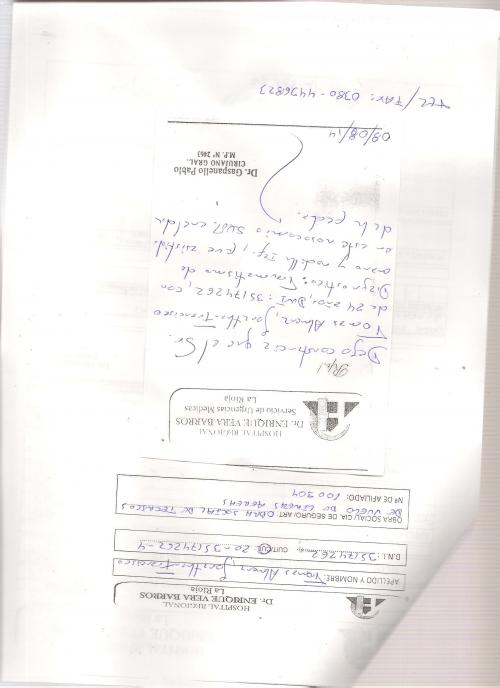 HOSPITAL REGIONAL
Dr. ENRIQUE VERA BARROS
La Rioja
APELLIDO Y NOMBRE: Francisco
D.N.I.: 35174262 CUIT/CUIL: 20-35174262-4
OBRA SOCIAL/ CIA. DE SEGURO/ ART: OBRA SOCIAL DE TECNICOS
DE VUELO DE LINEAS AEREAS
Nº DE AFILIADO: 100304
HOSPITAL REGIONAL
Dr. ENRIQUE VERA BARROS
Servicio de Urgencias Medicas
La Rioja
Dejo constancia que el Sr.
Francisco
de 24 años, DNI: 35174262, con
Diagnostico: Traumatismo de
mano y rodilla Izq., fue asistido
en este nosocomio en el dia
de la fecha.
Dr. Gaspanello Pablo
CIRUJANO GRAL.
M.P. Nº 2463
08/08/14
TEL/FAX: 0380-4456823